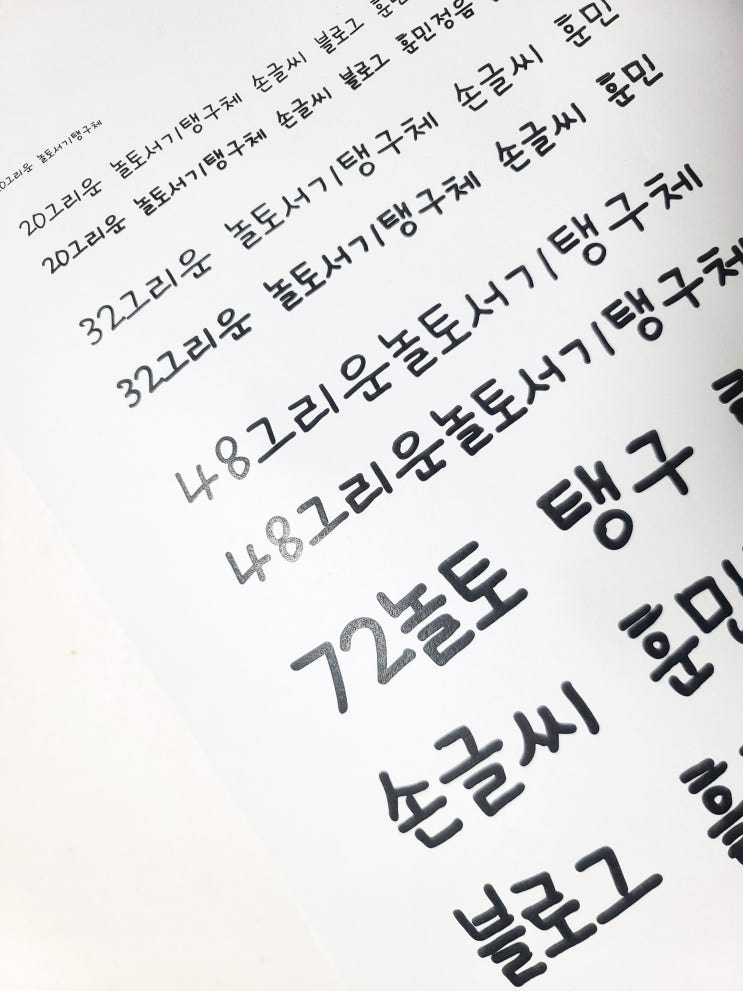 그리운 놀토서기탱구체
20그리운 놀토서기탱구체 손글씨 블로그
20그리운 놀토서기탱구체 손글씨 블로그 훈민정음
32그리운 놀토서기탱구체 손글씨 훈민
32그리운 놀토서기탱구체 손글씨 훈민
48그리운놀토서기탱구체
48그리운놀토서기탱구체
72놀토 탱구
손글씨 훈민
블로그